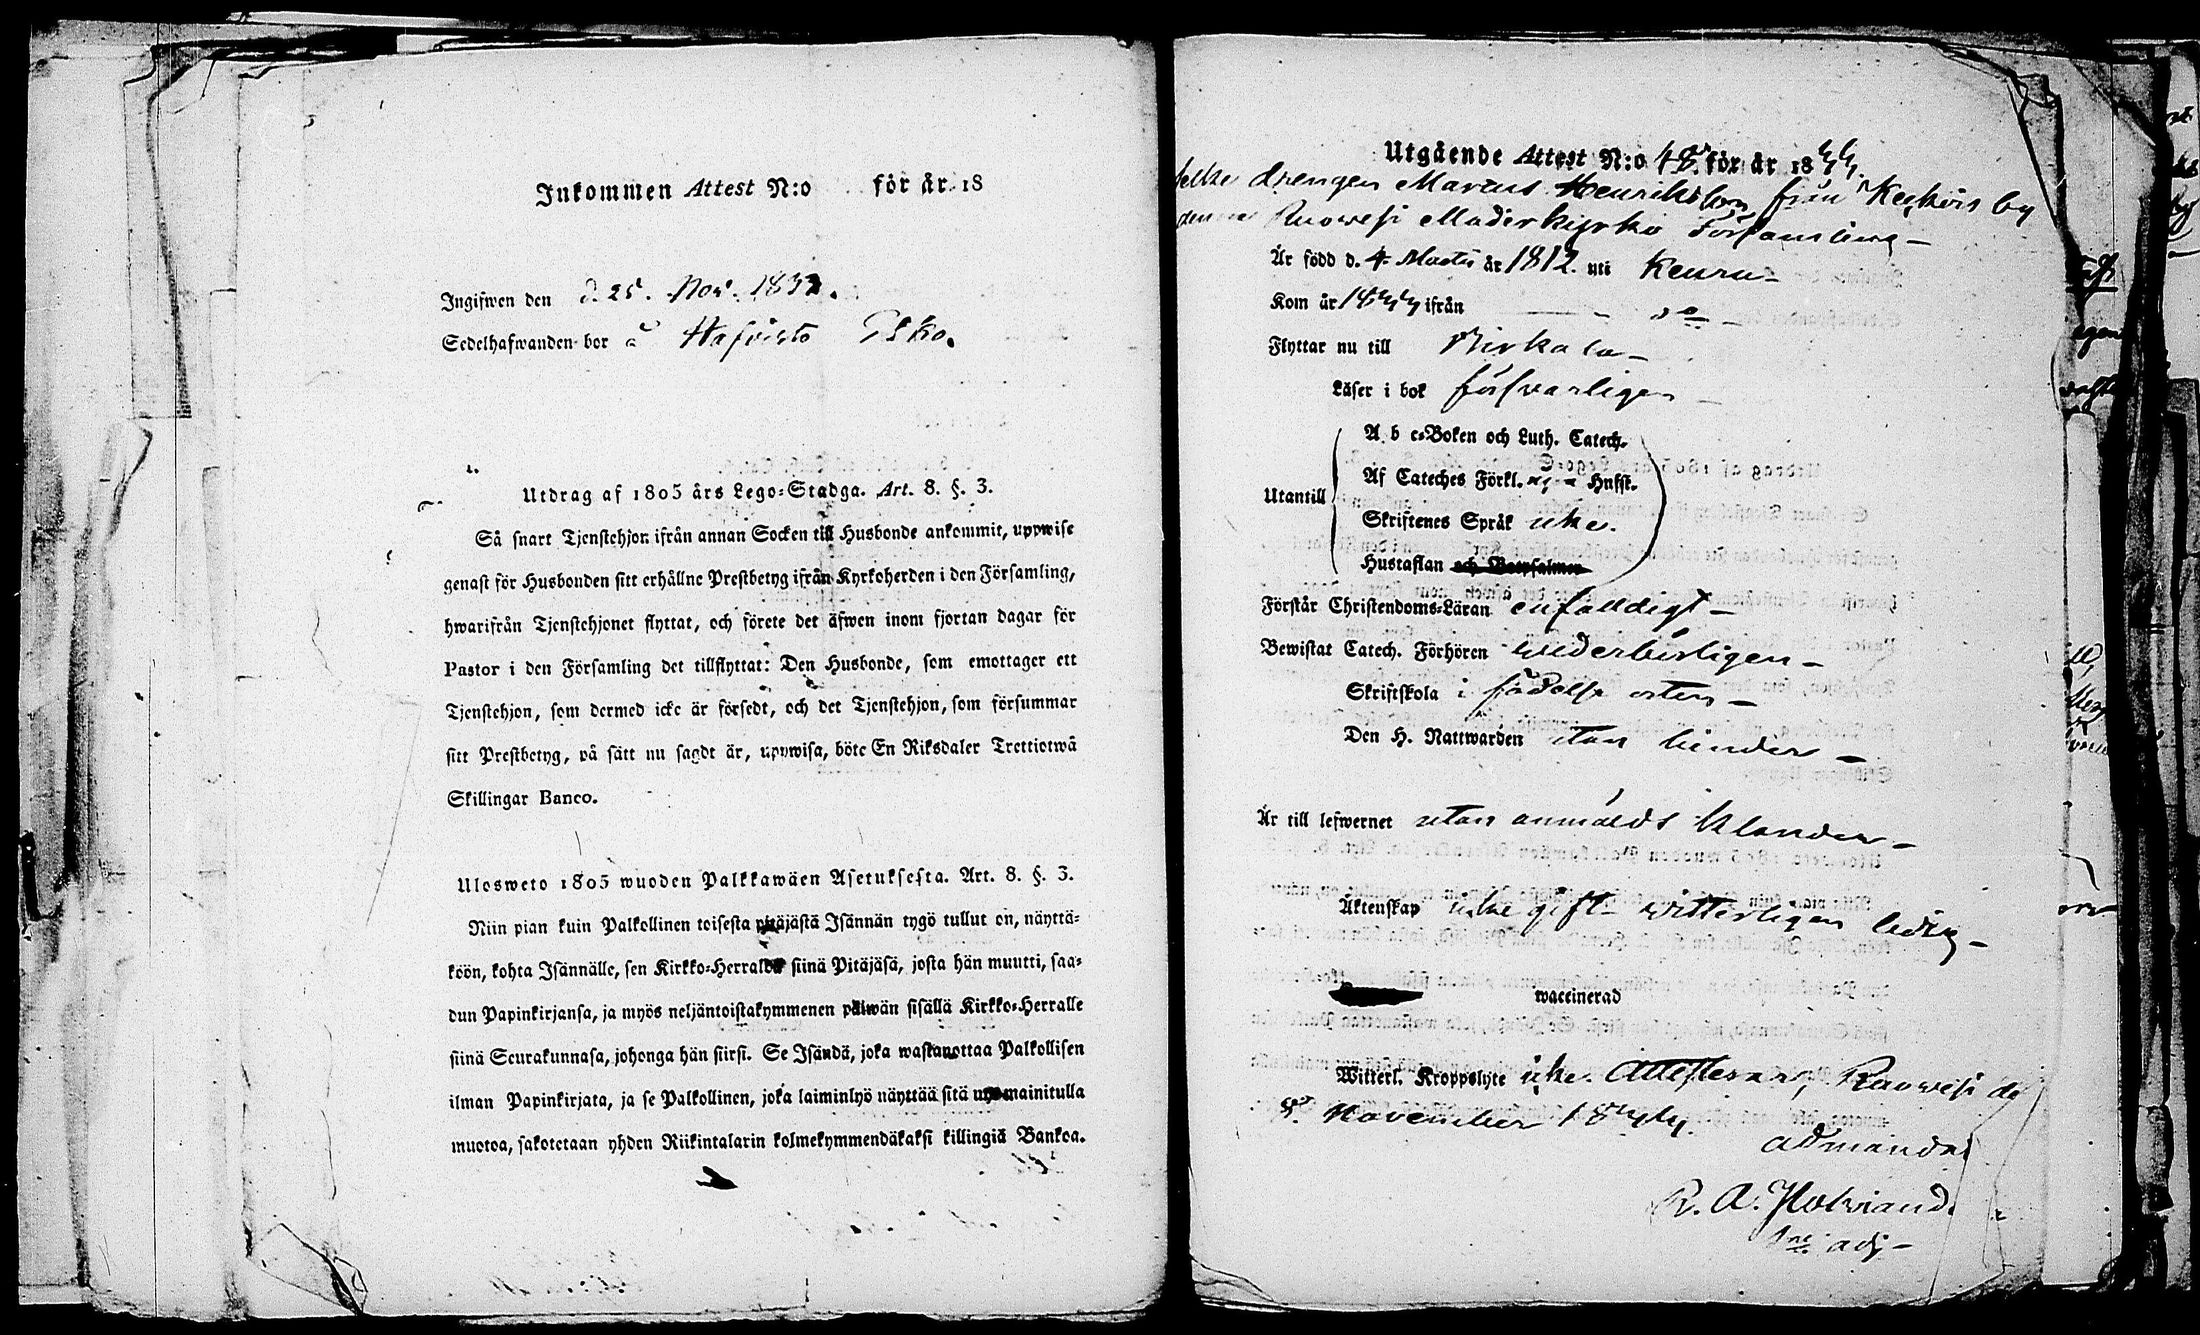 Inkommen Attest N:o för år 18
Ingifwen den d. 25. Nov. 1832.
Sedelhafwanden bor å Hafvisto
Utdrag af 1805 års Lego-Stadga. Art. 8. §. 3.
Så snart Tjenstehjon ifrån annan Socken till Husbonde ankommit, uppwise
genast för Husbonden sitt erhållne Prestbetyg ifrån Kyrkoherden i den Församling,
hwarifrån Tjenstehjonet flyttat, och förete det äfwen inom fjortan dagar för
Pastor i den Församling det tillflyttat: Den Husbonde, som emottager ett
Tjenstehjon, som dermed icke är försedt, och det Tjenstehjon, som försummar
sitt Prestbetyg, på sätt nu sagdt är, uppwisa, böte En Riksdaler Trettiotwå
Skillingar Banco.
Ulosweto 1805 wuoden Palkkawäen Asetuksesta. Art. 8. §. 3.
Niin pian kuin Palkollinen toisesta pitäjästä Isännän tygö tullut on, näyttä-
köön, kohta Isännälle, sen Kirkko-Herralda siinä Pitäjäsä, josta hän muutti, saa-
dun Papinkirjansa, ja myös neljäntoistakymmenen päiwän sisällä Kirkko-Herralle
siinä Seurakunnasa, johonga hän siirsi. Se Isändä, joka wastanottaa Palkollisen
ilman Papinkirjata, ja se Palkollinen, joka laiminlyö näyttää sitä ntomainitulla
muotoa, sakotetaan yhden Riikintalarin kolmekymmendäkaksi killingiä Bankoa.
Utgående Attest N:o 48 för år 1844.
drengen Marcus Henriksson från Keskois by
Ruowesi Moderkyrko Församling
Är född d. 4 Martii år 1812. uti Keuru
Kom år 1844 ifrån do
Flyttar nu till Birkala
Läser i bok försvarligen
Utantill
A b c-Boken och Luth. Catech.
Af Cateches Förkl. Hufst.
Skriftenes Språk icke.
Hustaflan och Botpsalmen
Förstår Christendoms-Läran enfaldigt
Bewistat Catech. Förhören wederbörligen
Skriftskola i födelse orten
Den H. Nattwarden utan hinder
Är till lefwernet utan anmäldt klander
Äktenskap icke gift witterligen ledig
waccinerad
Witterl. Kroppslyte icke. Attesterar, Ruowesi d.
8. November 1844.
R. A.
adj